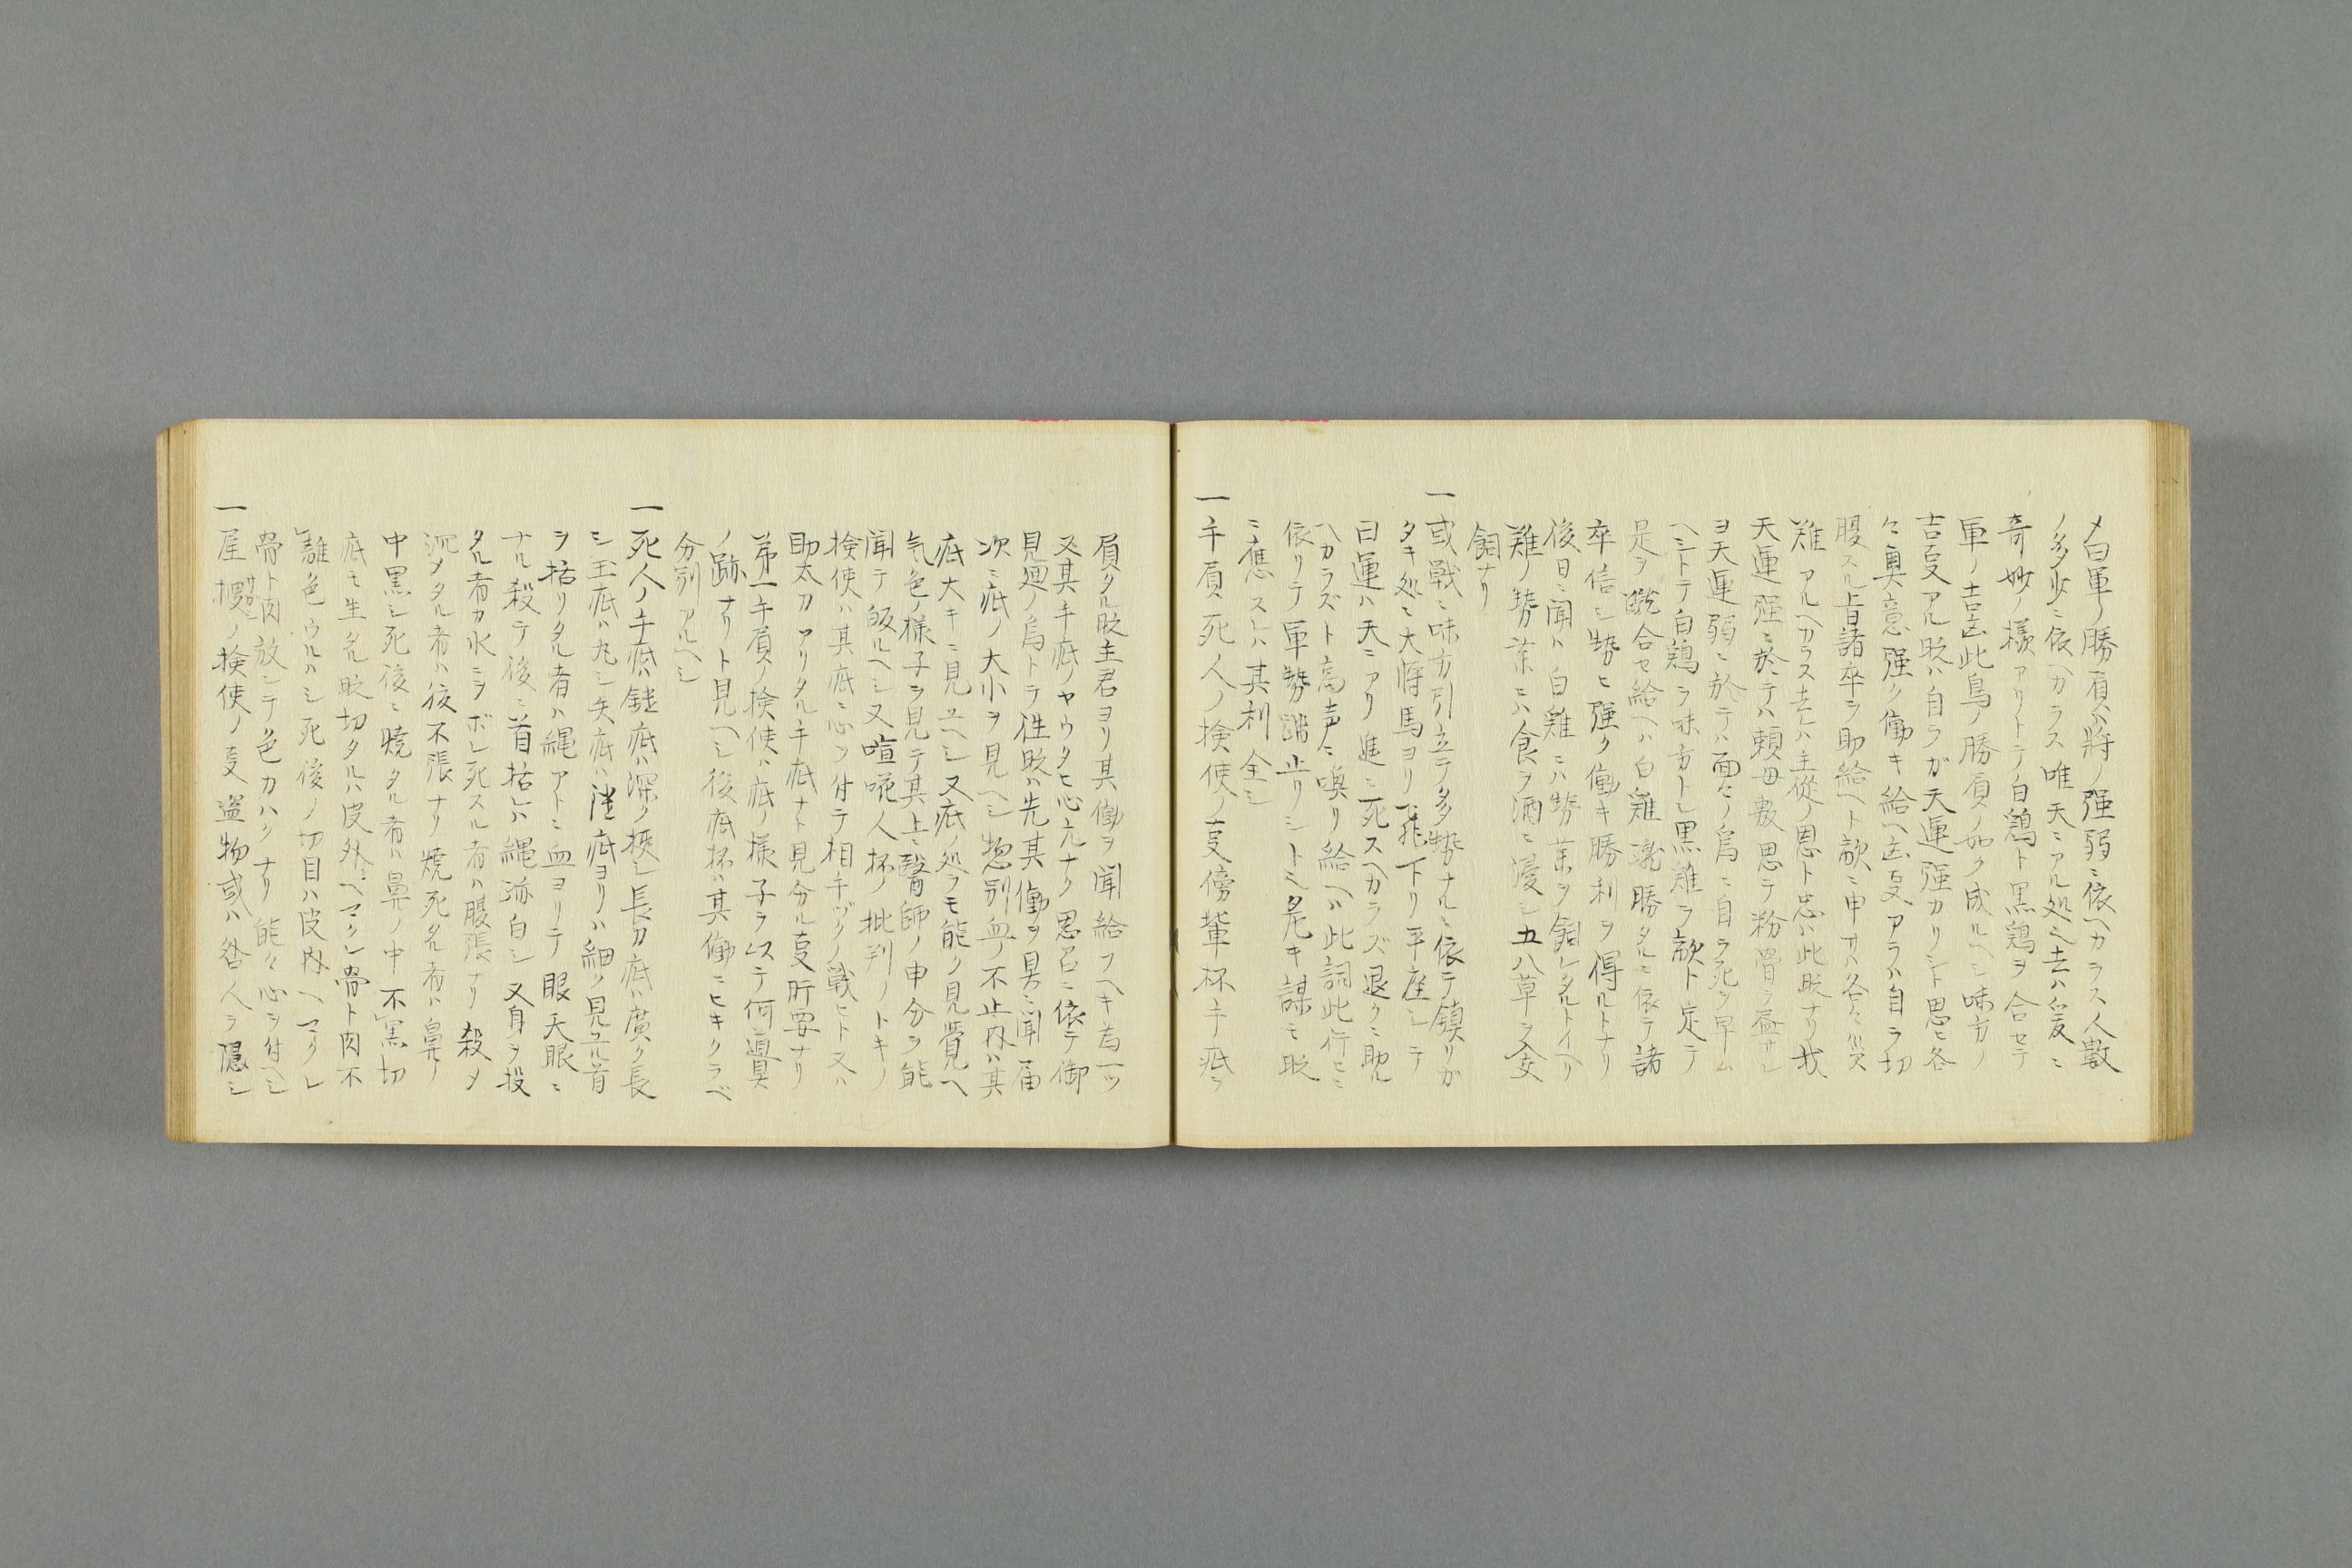 メ曰軍ノ勝負ハ将ノ強弱ニ依ヘカラス人数
ノ多少ニ依ヘカラス唯天ニアル処也去ハ爰ニ
奇妙ノ様アリトテ白鶏ト黒鶏ヲ合セテ
軍ノ吉凶此鳥ノ勝負ノ如ク成ルヘシ味方ノ
吉叓アル時ハ自ラガ天運強カリシト思ヒ各
々奥意強ク働キ給ヘ凶叓アラハ自ラ切
腹スル旨諸卒ヲ助給ヘト敵ニ申サハ各々災
難アルヘカラス去レハ主従ノ恩ト忠ハ此時ナリ我
天運強ニ於テハ頼母敷思テ粉骨ヲ尽サレ
ヨ天運弱ニ於テハ面々ノ為ニ自ラ死ヲ早ム
ヘシトテ白鶏ヲ味方トシ黒雞ヲ敵ト定テ
是ヲ蹴合セ給ヘハ白雞蹴勝タルニ依テ諸
卒信シ勢ヒ強ク働キ勝利ヲ得ルトナリ
後日ニ聞ハ白雞ニハ勢薬ヲ飼レタルトイヘリ
雞ノ勢薬ニハ食ヲ酒ニ浸シ五八草ヲ交
飼ナリ
一或戦ニ味方引立テ多勢ナルニ依テ鎮リガ
タキ処ニ大将馬ヨリ飛下リ平座シテ
曰運ハ天ニアリ進ニ死スヘカラズ退クニ助ル
ヘカラズト高声ニ喚リ給ヘハ此詞此行ヒニ
依リテ軍勢蹈止リシトミ是キ謀モ時
ニ應スレハ其利全シ
一手負死人ノ検使ノ叓傍輩杯手疵ヲ
負タル時主君ヨリ其働ヲ聞給フヘキ為一ツ
又其手疵ノヤウタヒ心元ナク思召ニ依テ御
見廻ノ為トテ徃時ハ先其働ヲ具ニ聞届
次ニ疵ノ大小ヲ見ヘシ惣別血ノ不止内ハ其
疵大キニ見ユヘシ又疵ノ処ヲモ能ク見覚ヘ
気色ノ様子ヲ見テ其上ニ醫師ノ申分ヲ能
聞テ皈ルヘシ又喧𠵅人杯ノ批判ノトキノ
検使ハ其疵ニ心ヲ付テ相手ヅクノ戦ヒト又ハ
助太刀アリタル手疵ナト見分ル叓肝要ナリ
第一手負ノ検使ハ疵ノ様子ヲ以テ何道具
ノ跡ナリト見ヘシ後疵杯ハ其働ニヒキクラベ
分別アルヘシ
一死人ノ手疵ハ鎚疵ハ深ク挾シ長刀疵ハ廣ク長
シ玉疵ハ丸シ矢疵ハ鑓疵ヨリハ細ク見ユル首
ヲ括リタル者ハ縄アトニ血ヨリテ眼天眼ニ
ナル殺テ後ニ首括レハ縄跡白シ又身ヲ投
タル者カ水ニヲボレ死スル者ハ腹張ナリ殺メ
沉メタル者ハ夜不張ナリ焼死タル者ハ鼻ノ
中黒シ死後ニ焼タル者ハ鼻ノ中不黒切
疵モ生タル時切タルハ皮外ヘマクレ骨ト肉不
離色ウルハシ死後ノ切目ハ皮内ヘマクレ
骨ト肉放シテ色カハクナリ能々心ヲ付ヘシ
一屋捜サガシノ検使ノ叓盗物或ハ咎人ヲ隠シ